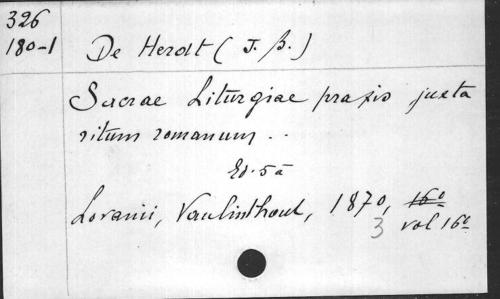 326
180-1
De Herdt (J. B.)
Sacrae Liturgiae praxis juxta
ritum romanum ..
Ed. 5a
Lovanii, Vanlinthout, 1870, 16º
3 vol 16º